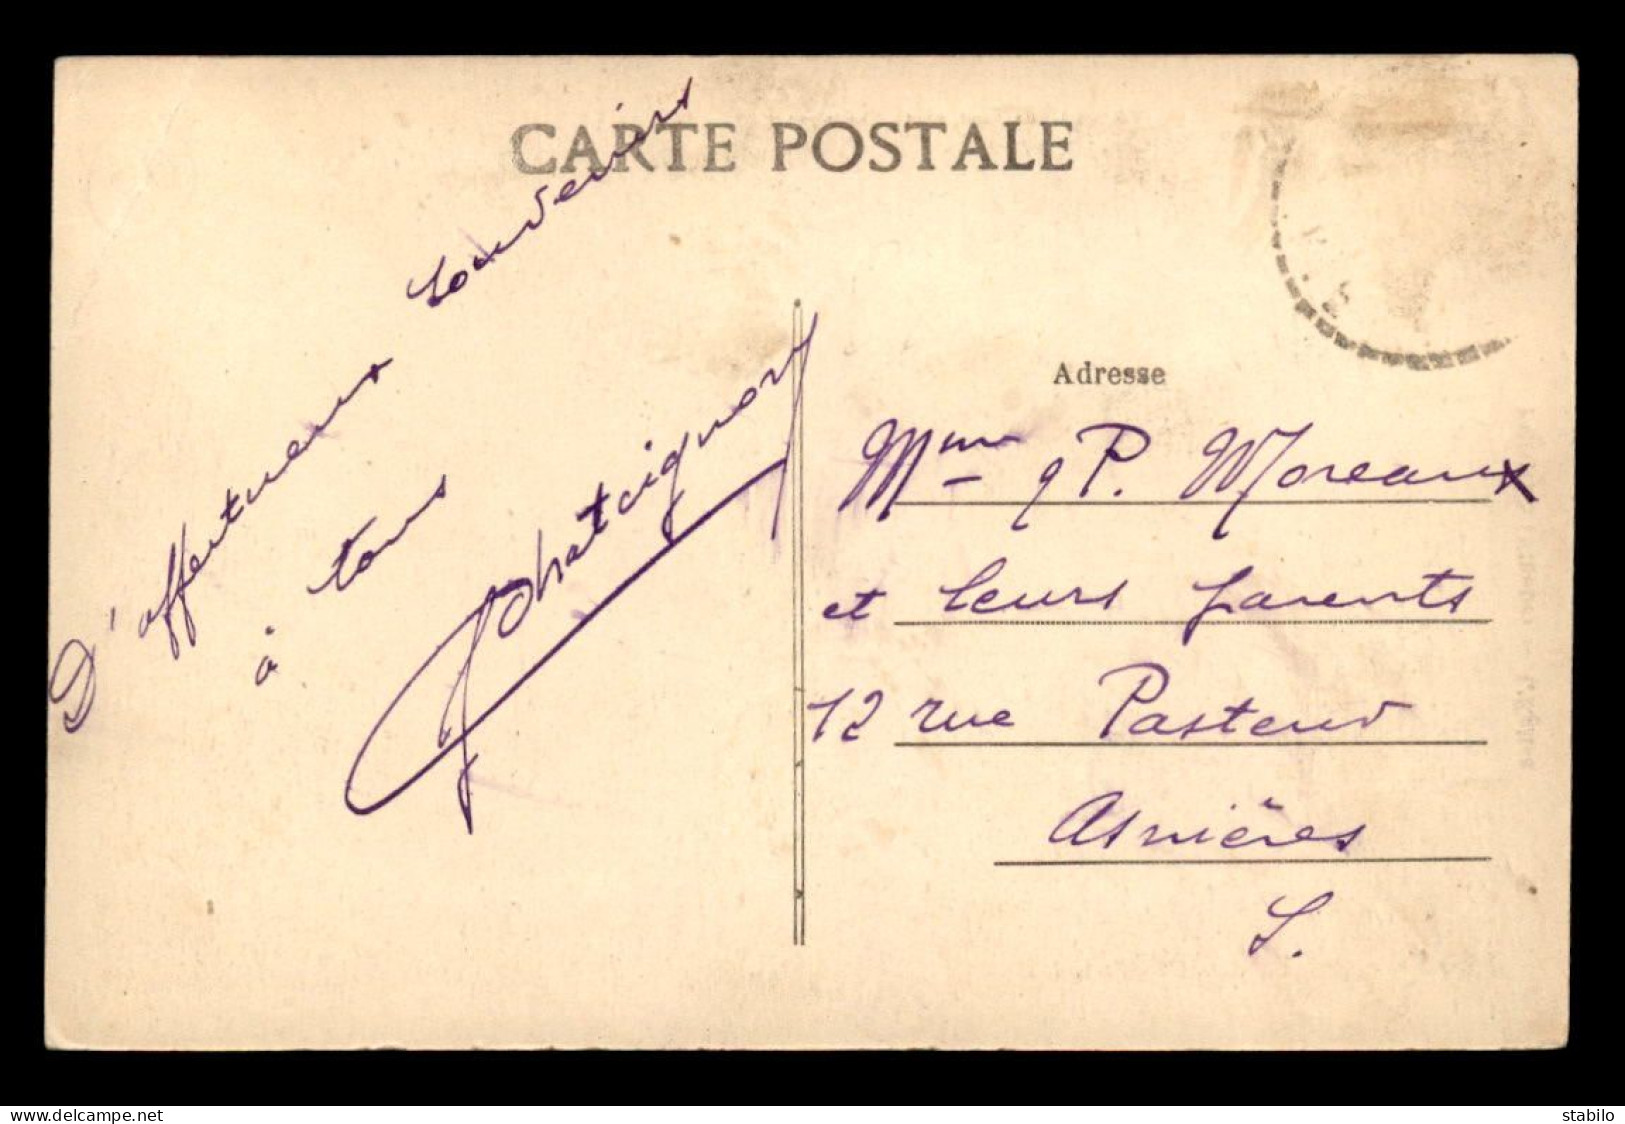 CARTE POSTALE
D'affectueux souvenirs
à tous
Adresse
Mme P. Moreaux
et leurs parents
12 rue Pasteur
Asnières
S.
www.delcampe.net
stabilo